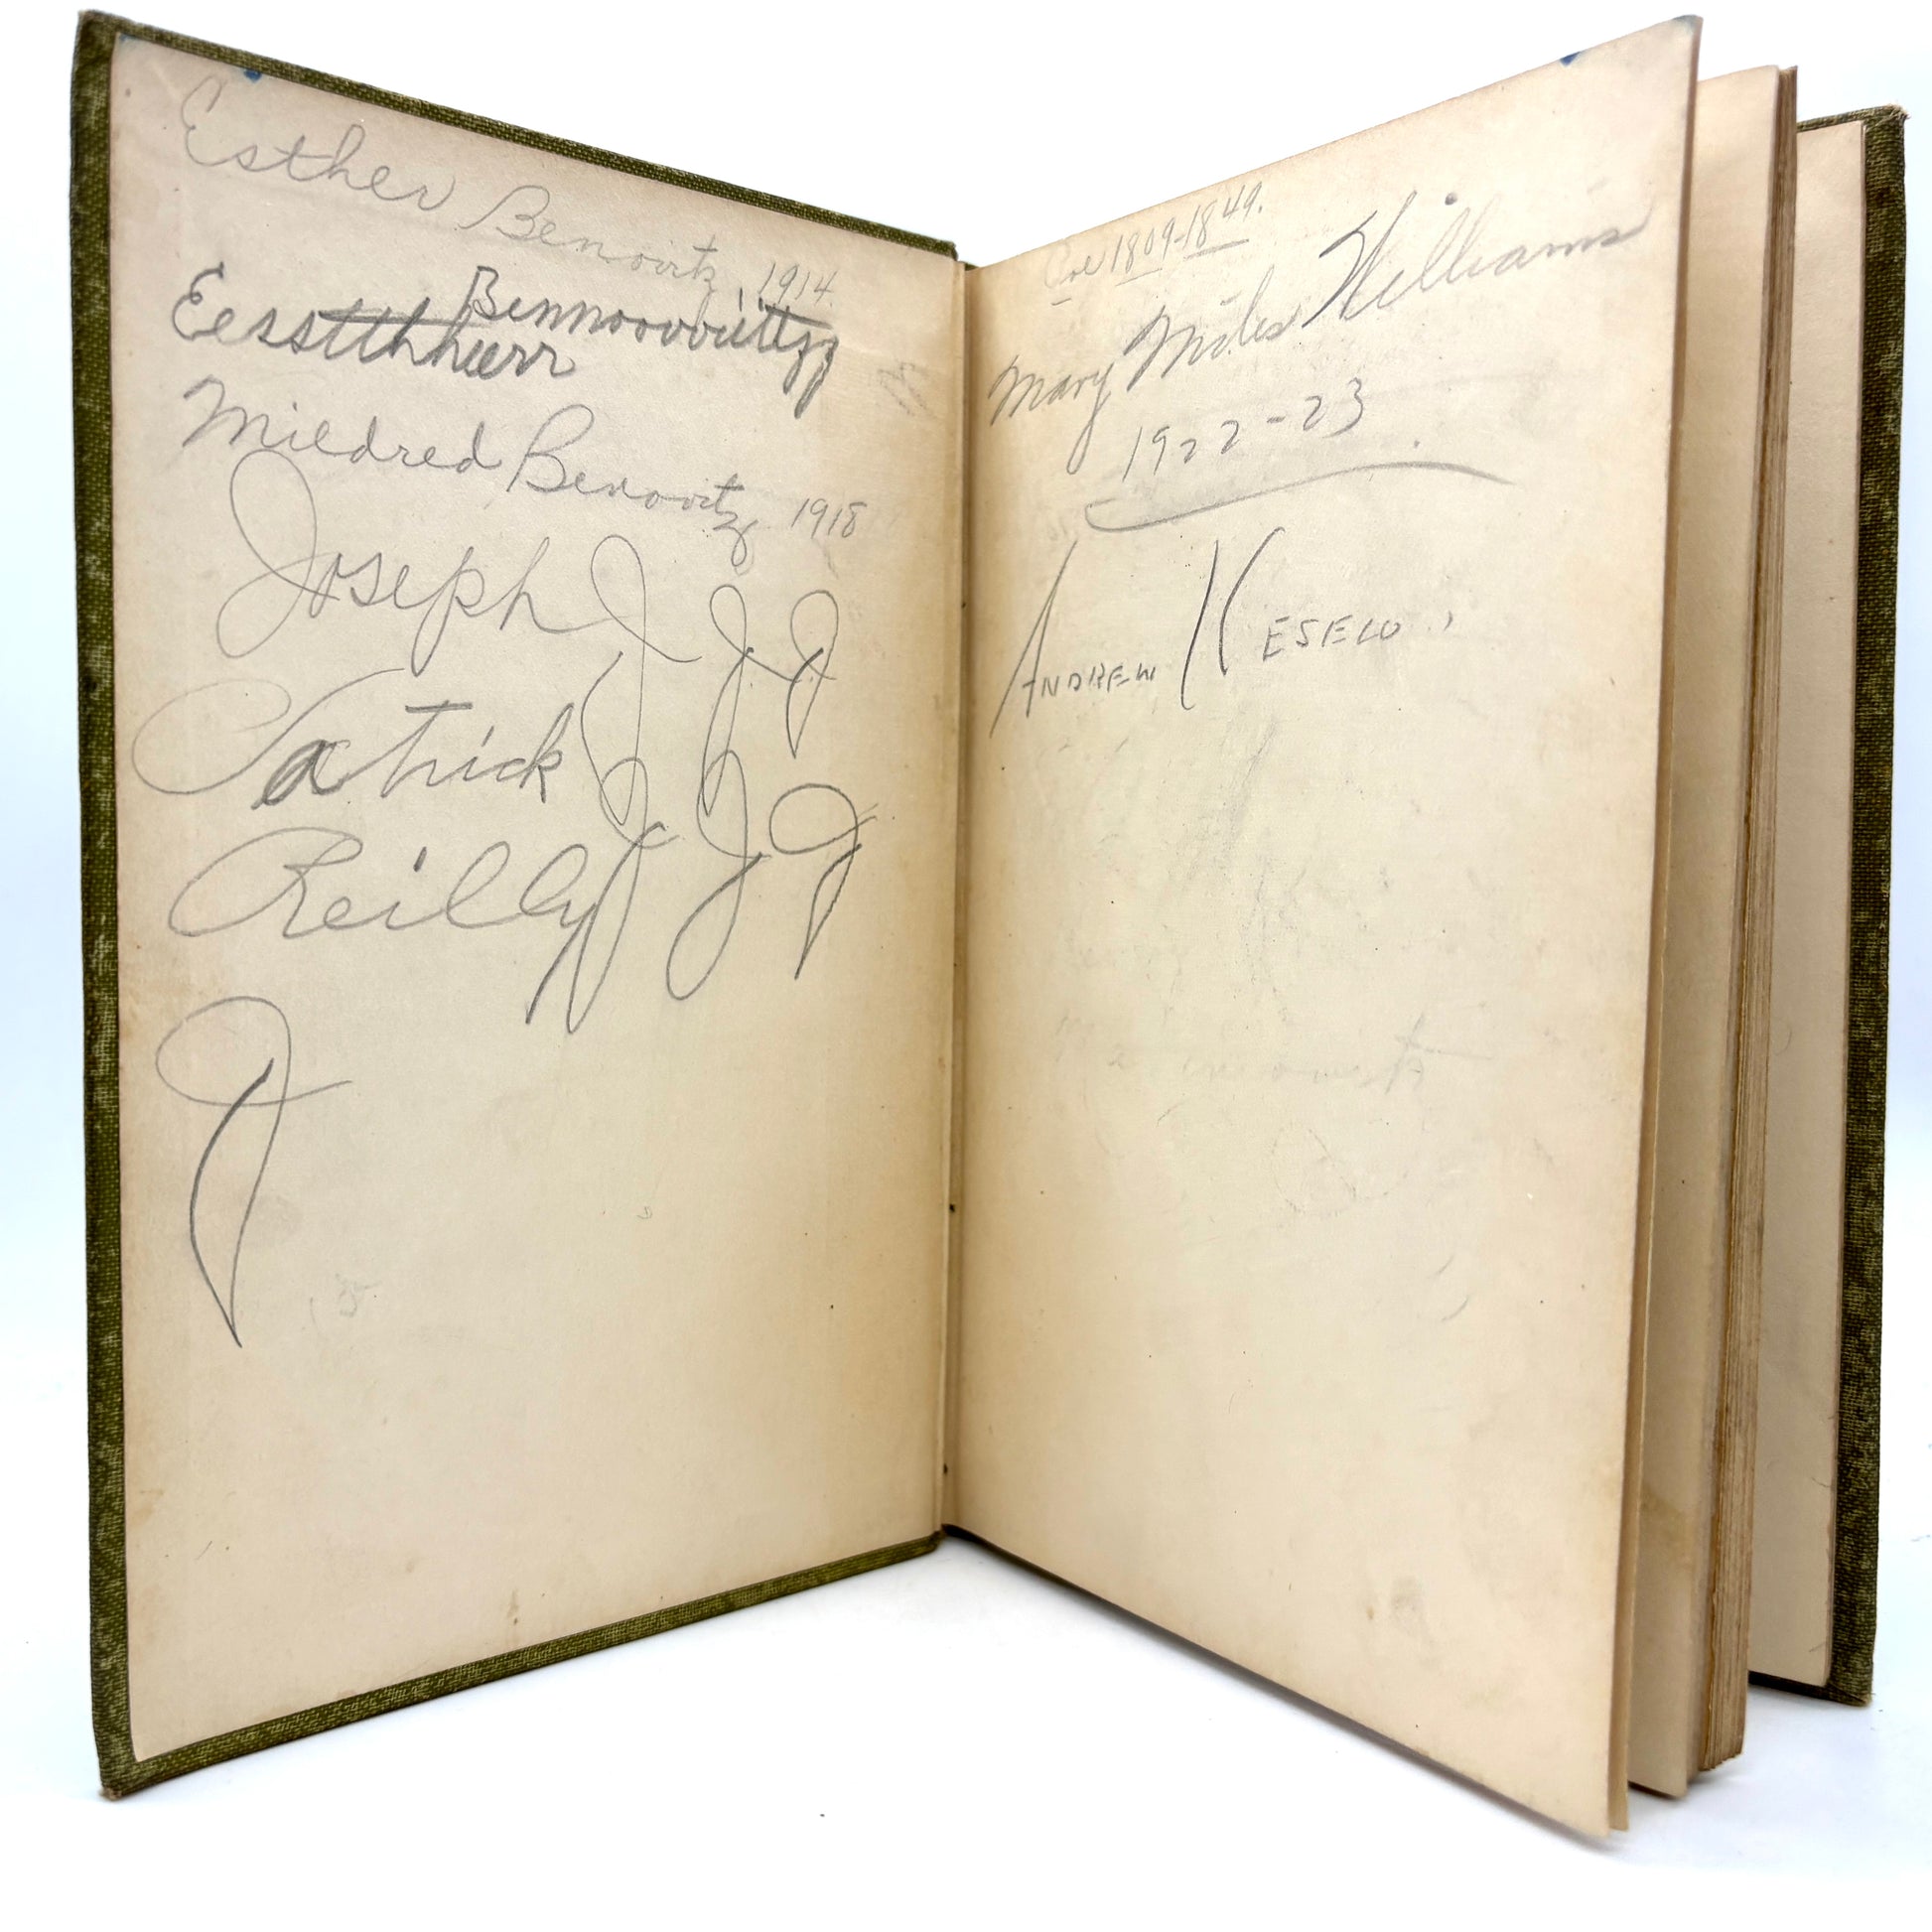 Esther Benovitz 1914.
Bennoovviittzz
Eessttthheerr
Mildred Benovitz 1918
Joseph J J J
Patrick J J J
Reilly
J
Poe 1809-1849.
Mary Miles Williams
1922-23
ANDREW KESELO